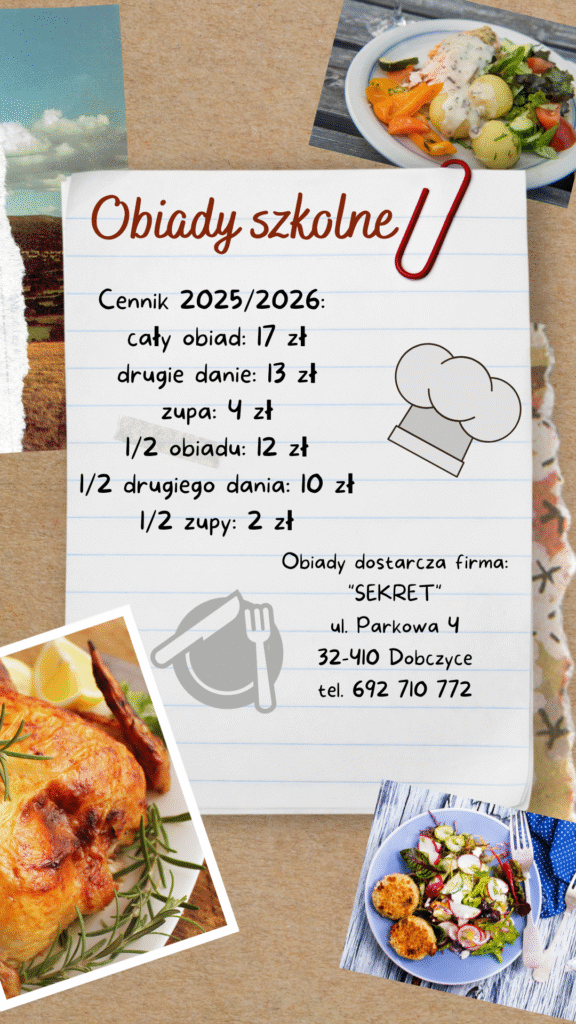 Obiady szkolne
Cennik 2025/2026:
cały obiad: 17 zł
drugie danie: 13 zł
zupa: 4 zł
1/2 obiadu: 12 zł
1/2 drugiego dania: 10 zł
1/2 zupy: 2 zł
Obiady dostarcza firma:
"SEKRET"
ul. Parkowa 4
32-410 Dobczyce
tel. 692 710 772